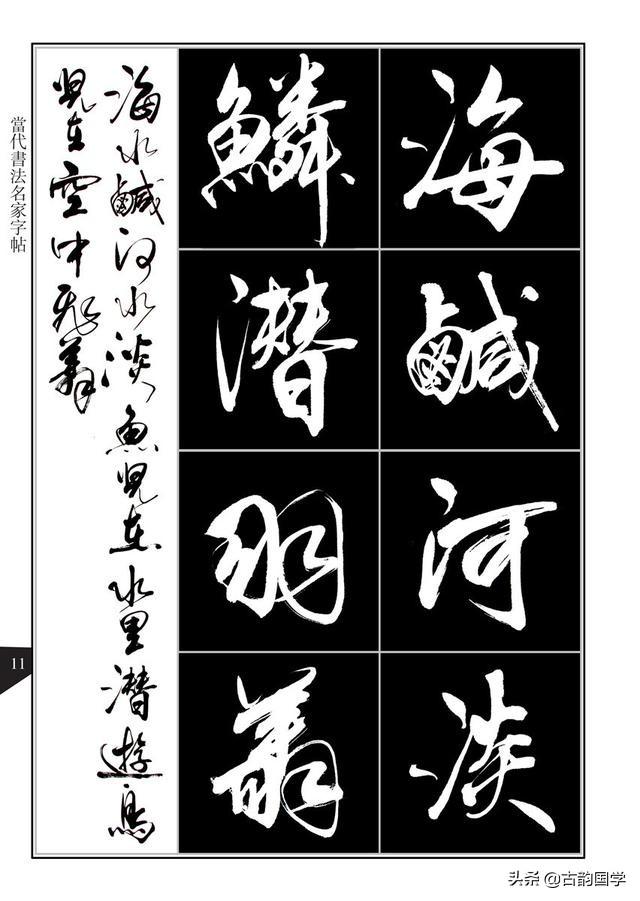 海鹹河淡
鱗潜羽翔
海水鹹河水淡魚兒在水里潜遊鳥
兒在空中飛翔
當代書法名家字帖
11
头条 @古韵国学